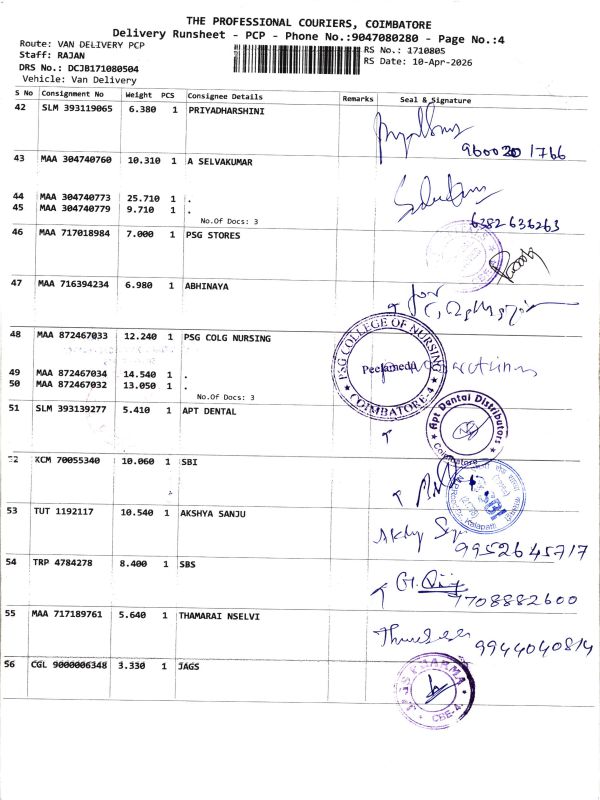 THE PROFESSIONAL COURIERS, COIMBATORE
Delivery Runsheet - PCP - Phone No.:9047080280 - Page No.:4
Route: VAN DELIVERY PCP
RS No.: 1710805
Staff: RAJAN
RS Date: 10-Apr-2026
DRS No.: DCJB171080504
Vehicle: Van Delivery
S No Consignment No Weight PCS Consignee Details Remarks Seal & Signature
42 SLM 393119065 6.380 1 PRIYADHARSHINI
9600201766
43 MAA 304740760 10.310 1 A SELVAKUMAR
44 MAA 304740773 25.710 1 .
45 MAA 304740779 9.710 1 .
No.Of Docs: 3
6382636263
46 MAA 717018984 7.000 1 PSG STORES
47 MAA 716394234 6.980 1 ABHINAYA
for
48 MAA 872467033 12.240 1 PSG COLG NURSING
PSG COLLEGE OF NURSING
Peelamedu
COIMBATORE-4
49 MAA 872467034 14.540 1 .
50 MAA 872467032 13.050 1 .
No.Of Docs: 3
51 SLM 393139277 5.410 1 APT DENTAL
Apt Dental Distributors
Coimbatore
52 KCM 70055340 10.060 1 SBI
SBI
53 TUT 1192117 10.540 1 AKSHYA SANJU
9952645717
54 TRP 4784278 8.400 1 SBS
7708882600
55 MAA 717189761 5.640 1 THAMARAI NSELVI
9944040814
56 CGL 9000006348 3.330 1 JAGS
PHARMA
CBE-4